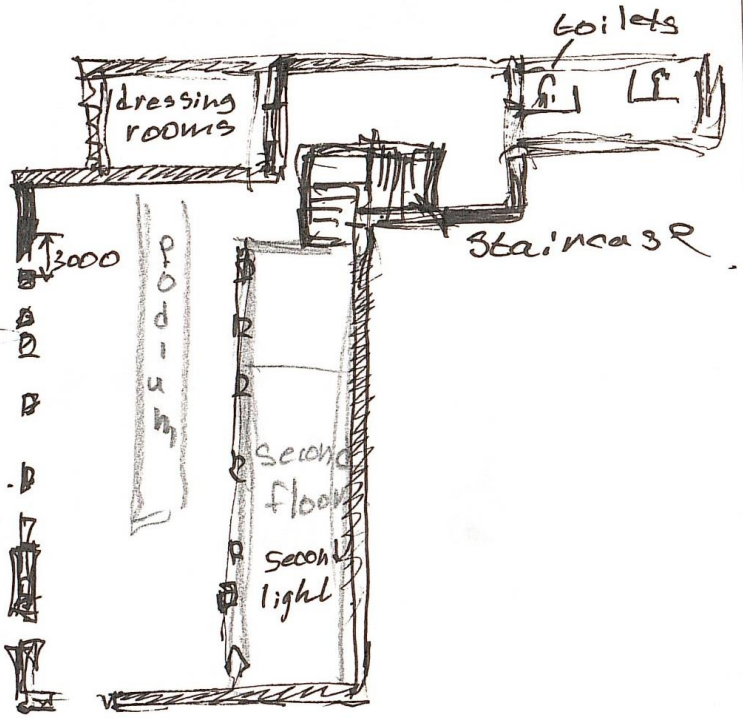 toilets
dressing
rooms
staircase
3000
podium
second
floor
second
light